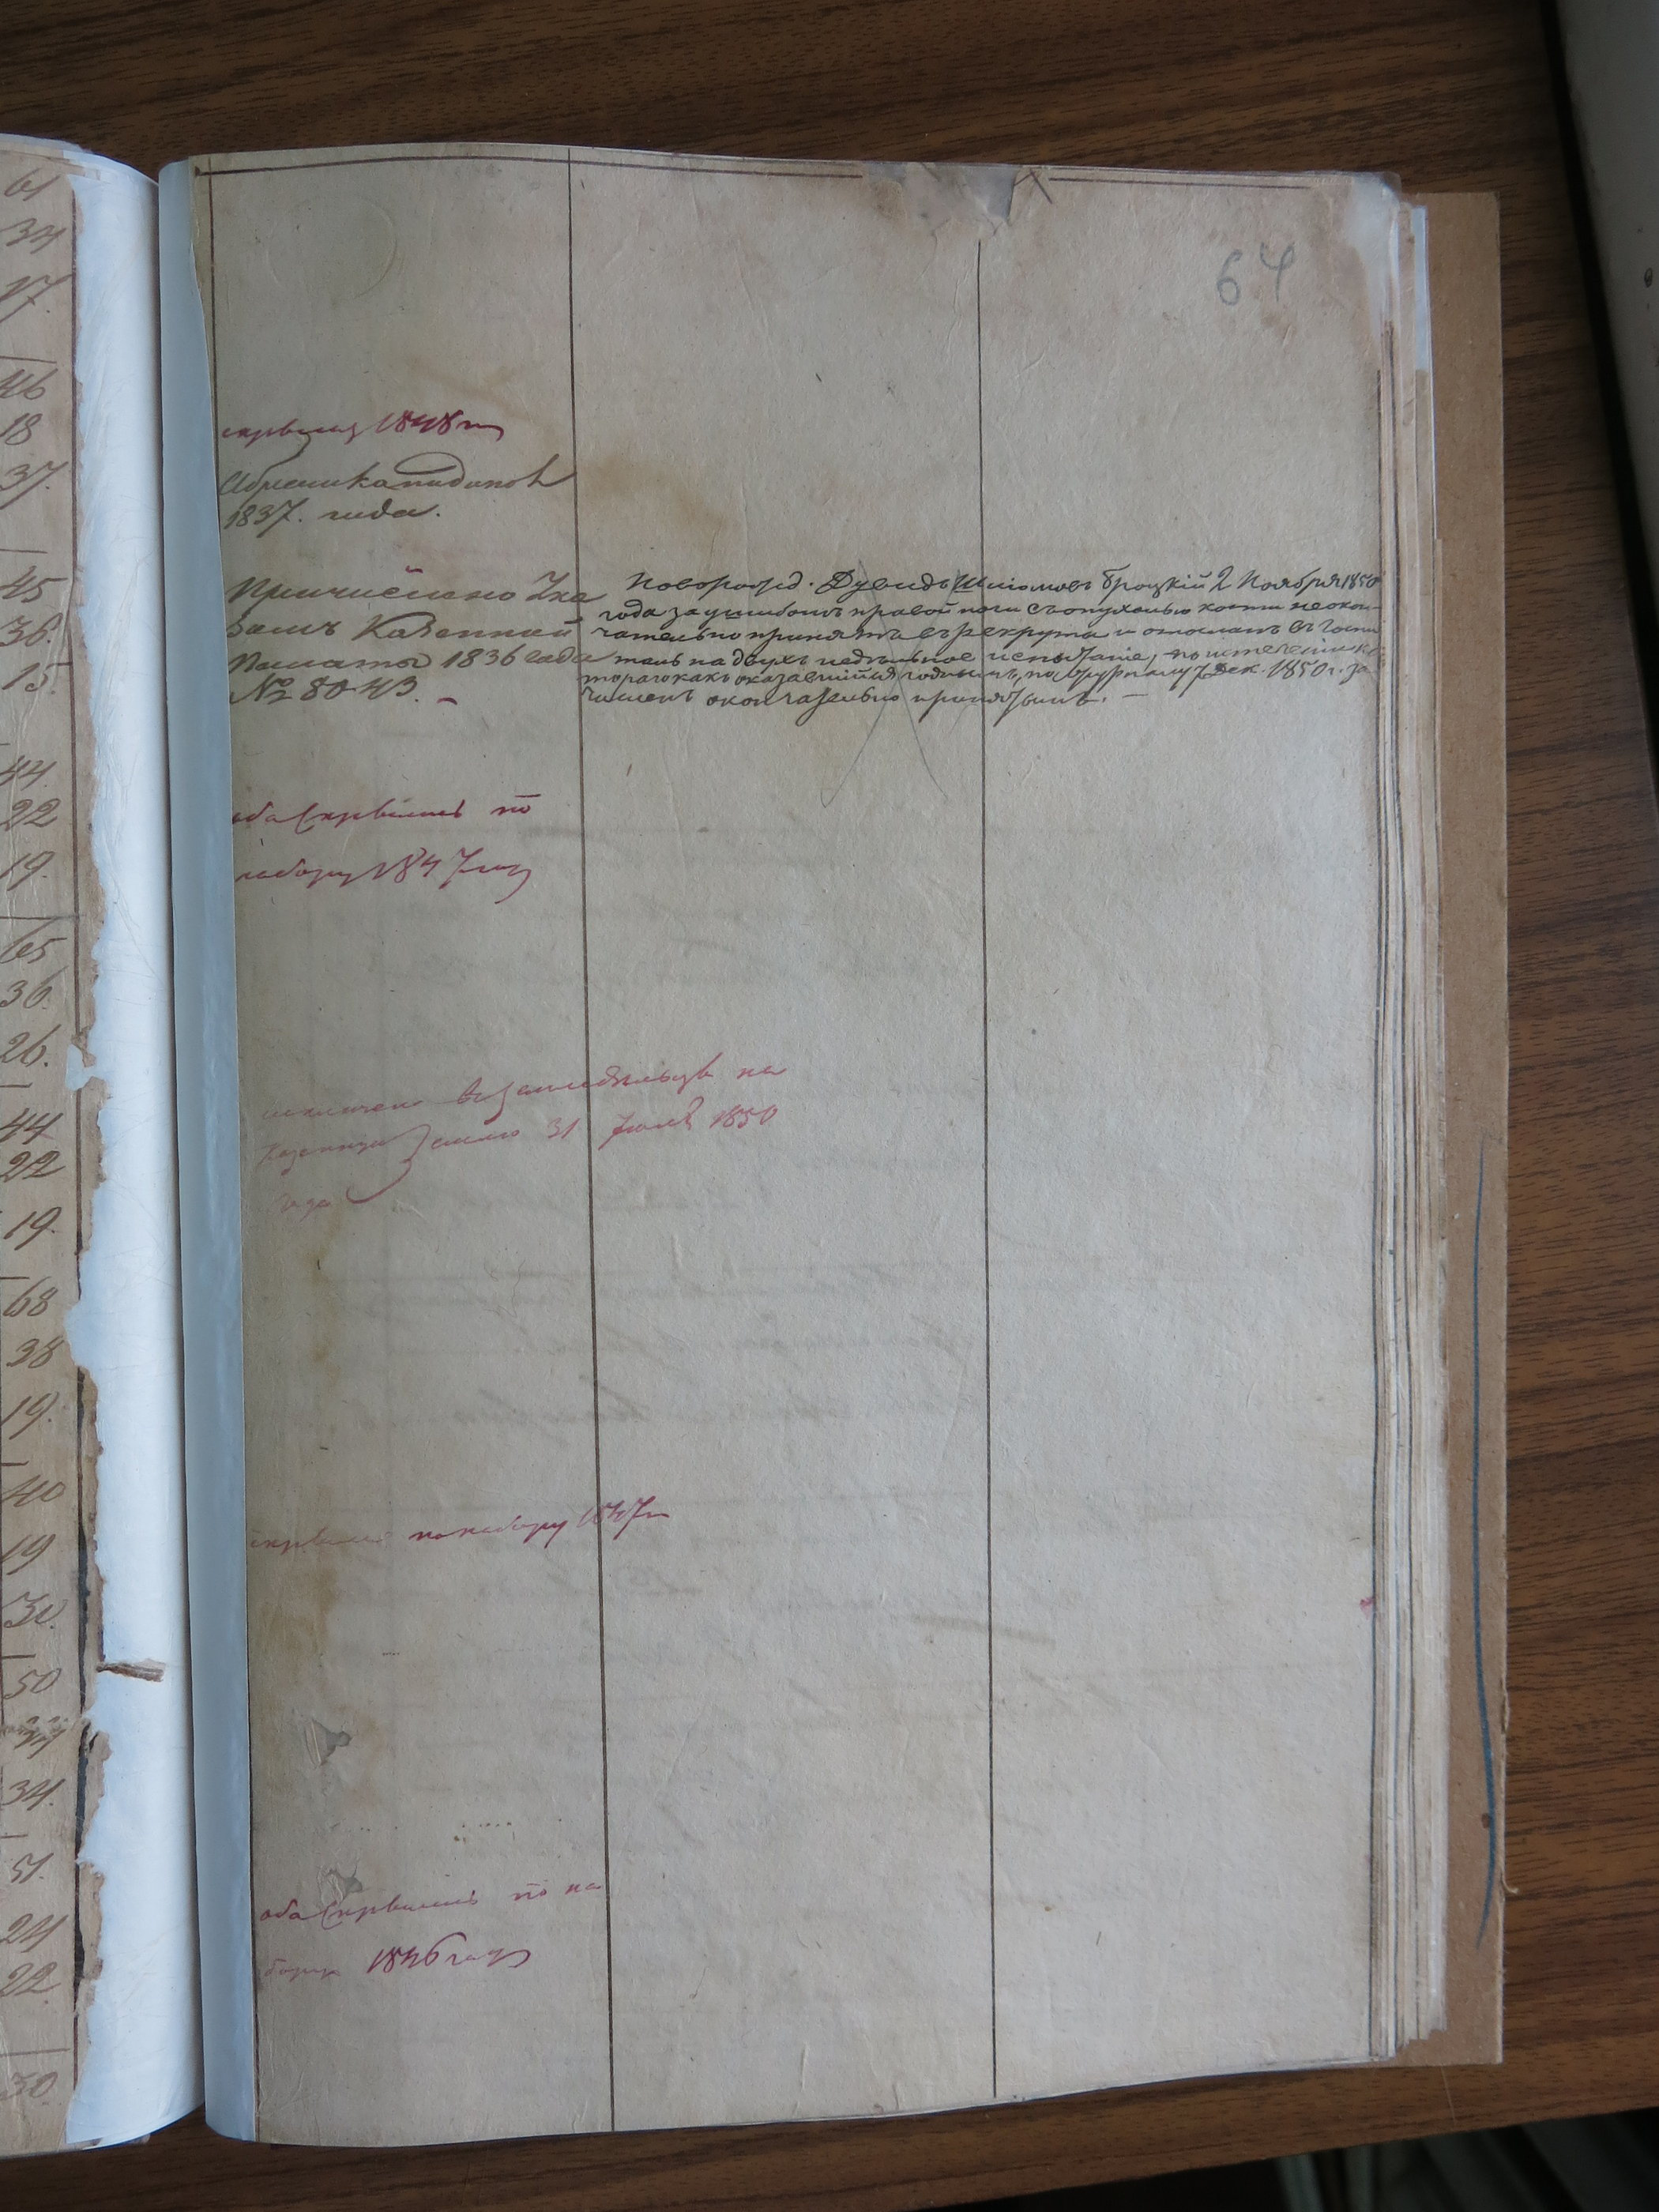 61
34
17.
46
18
37.
45
36.
15.
44.
22
19.
65
36.
26.
44
22
19.
68
38
19.
40
19
30.
50
34.
51.
24
22
30.
64
1848
1837. года.
Причислено Ука
зомъ Казенной
Палаты 1836 года
№ 8043.
Дувидъ Шліомовъ Броцкій 2 Ноября 1850
года за ушибомъ правой ноги съ опухолью кости неокон-
чательно принятъ въ рекруты и отосланъ въ Госпи
таль на двухъ недѣльное испытаніе, по истеченіи ко
тораго какъ оказавшійся годнымъ, по журналу 7 Дек. 1850 г. за
численъ окончательно принятымъ. —
оба скрылись по
набору 1847 году
на
31 1850
года
по набору 1847
оба скрылись по на
бору 1846 году